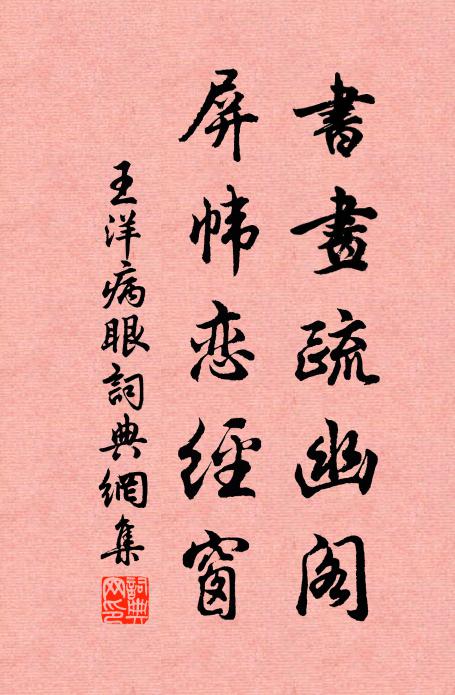 書畫疏幽閣
屏幃恋經窗
王洋病眼詞典網集
詞典网印